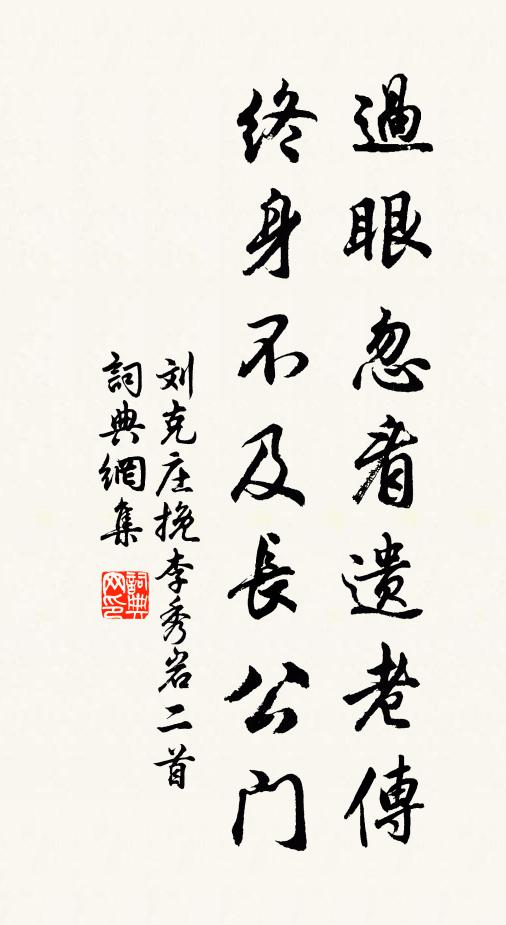 過眼忽看遺老傳
終身不及長公門
刘克庄挽李秀岩二首
詞典網集
詞典网印